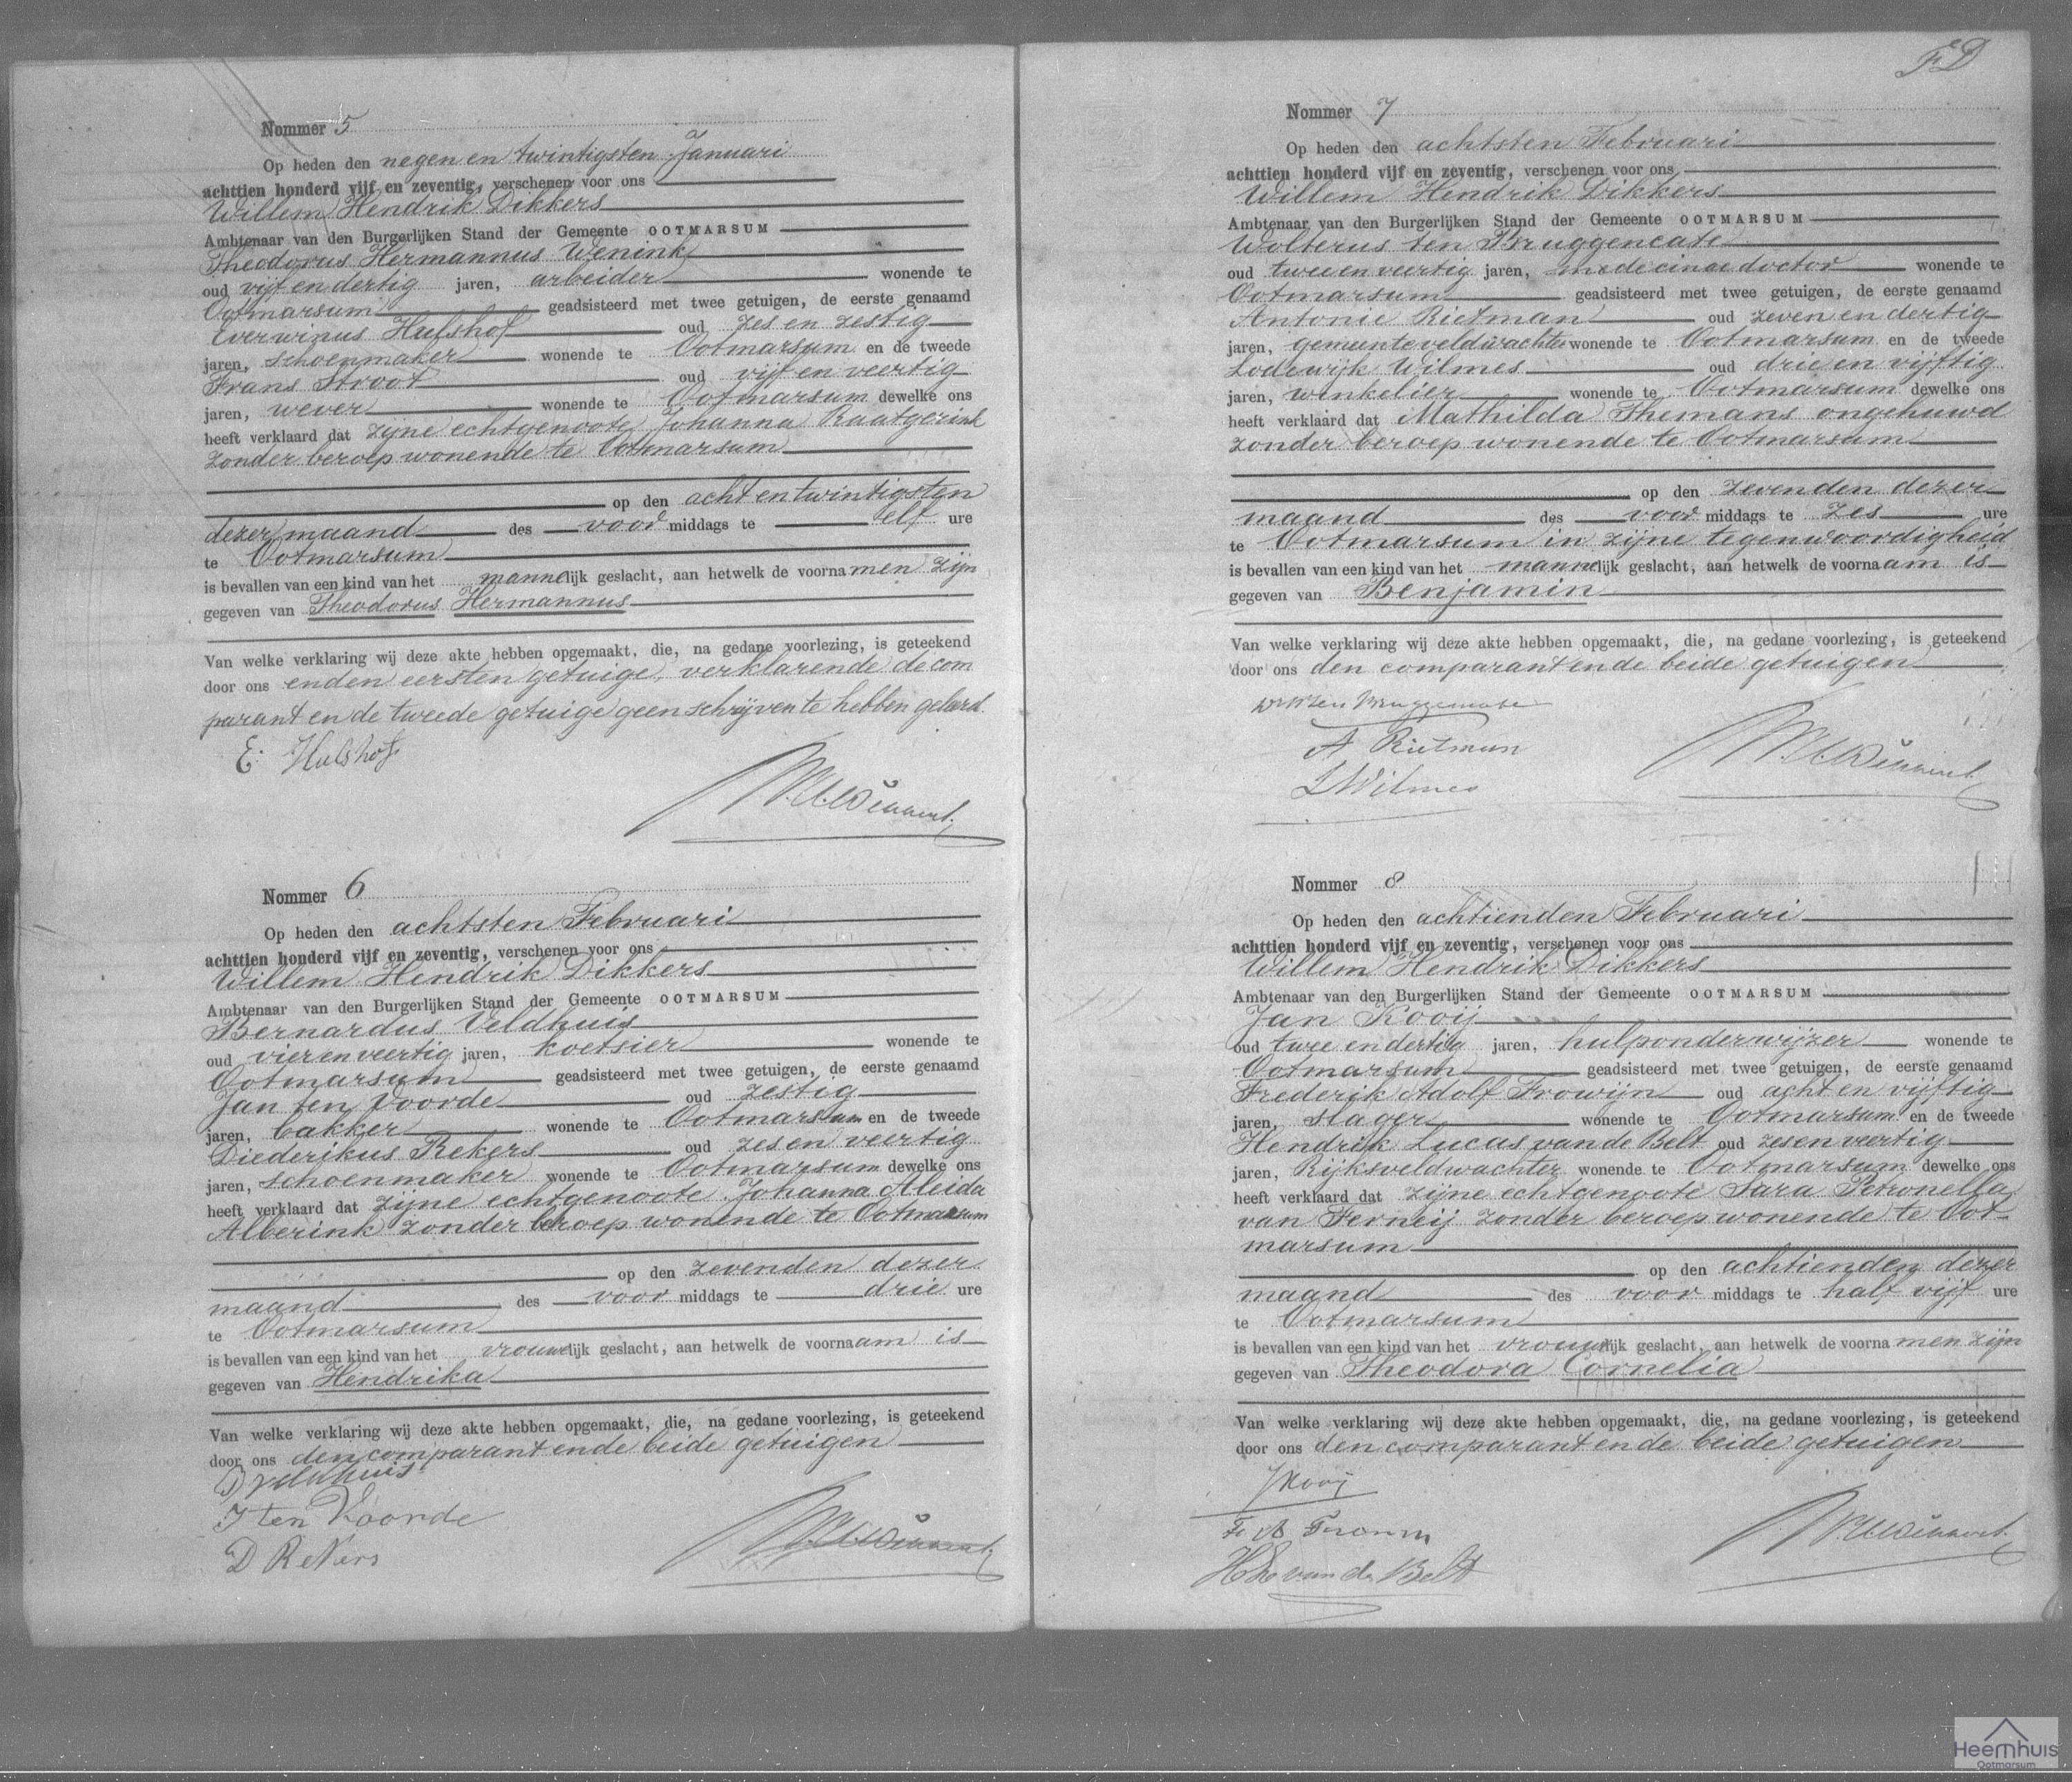 Nommer 5
Op heden den negen en twintigsten Januari
achttien honderd vijf en zeventig, verschenen voor ons
Willem Hendrik Dikkers
Ambtenaar van den Burgerlijken Stand der Gemeente OOTMARSUM
Theodorus Hermannus Wenink
oud vijf en dertig jaren, arbeider wonende te
Ootmarsum geadsisteerd met twee getuigen, de eerste genaamd
Everwinus Hulshof oud zes en zestig
jaren, schoenmaker wonende te Ootmarsum en de tweede
Frans Stroot oud vijf en veertig
jaren, wever wonende te Ootmarsum dewelke ons
heeft verklaard dat zijne echtgenoote Johanna Raatgerink
zonder beroep wonende te Ootmarsum
op den acht en twintigsten
dezer maand des voor middags te elf ure
te Ootmarsum
is bevallen van een kind van het mannelijk geslacht, aan hetwelk de voornamen zijn
gegeven van Theodorus Hermannus
Van welke verklaring wij deze akte hebben opgemaakt, die, na gedane voorlezing, is geteekend
door ons en den eersten getuige, verklarende de com
parant en de tweede getuige geen schrijven te hebben geleerd.
E. Hulshof
Nommer 6
Op heden den achtsten Februari
achttien honderd vijf en zeventig, verschenen voor ons
Willem Hendrik Dikkers
Ambtenaar van den Burgerlijken Stand der Gemeente OOTMARSUM
Bernardus Veldhuis
oud vier en veertig jaren, koetsier wonende te
Ootmarsum geadsisteerd met twee getuigen, de eerste genaamd
Jan ten Voorde oud zestig
jaren, bakker wonende te Ootmarsum en de tweede
Diederikus Rekers oud zes en veertig
jaren, schoenmaker wonende te Ootmarsum dewelke ons
heeft verklaard dat zijne echtgenoote Johanna Aleida
Alberink zonder beroep wonende te Ootmarsum
op den zevenden dezer
maand des voor middags te drie ure
te Ootmarsum
is bevallen van een kind van het vrouwelijk geslacht, aan hetwelk de voornaam is
gegeven van Hendrika
Van welke verklaring wij deze akte hebben opgemaakt, die, na gedane voorlezing, is geteekend
door ons den comparant en de beide getuigen
B Veldhuis
J ten Voorde
D Rekers
FD
Nommer 7
Op heden den achtsten Februari
achttien honderd vijf en zeventig, verschenen voor ons
Willem Hendrik Dikkers
Ambtenaar van den Burgerlijken Stand der Gemeente OOTMARSUM
Wolterus ten Bruggencate
oud twee en veertig jaren, medecinae doctor wonende te
Ootmarsum geadsisteerd met twee getuigen, de eerste genaamd
Antonie Rietman oud zeven en dertig
jaren, gemeenteveldwachter wonende te Ootmarsum en de tweede
Lodewijk Wilmes oud drie en vijftig
jaren, winkelier wonende te Ootmarsum dewelke ons
heeft verklaard dat Mathilda Themans ongehuwd
zonder beroep wonende te Ootmarsum
op den zevenden dezer
maand des voor middags te zes ure
te Ootmarsum in zijne tegenwoordigheid
is bevallen van een kind van het mannelijk geslacht, aan hetwelk de voornaam is
gegeven van Benjamin
Van welke verklaring wij deze akte hebben opgemaakt, die, na gedane voorlezing, is geteekend
door ons den comparant en de beide getuigen
ten Bruggencate
A Rietman
L Wilmes
Nommer 8
Op heden den achtienden Februari
achttien honderd vijf en zeventig, verschenen voor ons
Willem Hendrik Dikkers
Ambtenaar van den Burgerlijken Stand der Gemeente OOTMARSUM
Jan Kooij
oud twee en dertig jaren, hulponderwijzer wonende te
Ootmarsum geadsisteerd met twee getuigen, de eerste genaamd
Frederik Adolf Frowijn oud acht en vijftig
jaren, slager wonende te Ootmarsum en de tweede
Hendrik Lucas van de Belt oud zes en veertig
jaren, Rijksveldwachter wonende te Ootmarsum dewelke ons
heeft verklaard dat zijne echtgenoote Sara Petronella
van Ferneij zonder beroep wonende te Oot-
marsum
op den achtienden dezer
maand des voor middags te half vijf ure
te Ootmarsum
is bevallen van een kind van het vrouwelijk geslacht, aan hetwelk de voornamen zijn
gegeven van Theodora Cornelia
Van welke verklaring wij deze akte hebben opgemaakt, die, na gedane voorlezing, is geteekend
door ons den comparant en de beide getuigen
J Kooij
F A Frowijn
H L van de Belt
Heemhuis
Ootmarsum